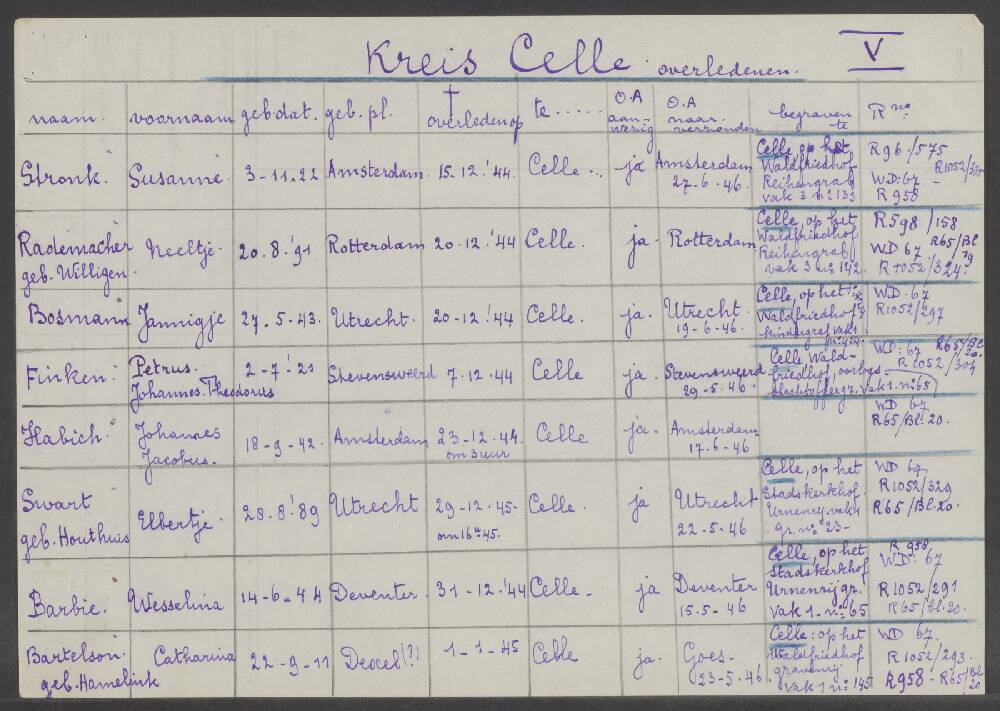 Kreis Celle overledenen. V
naam. voornaam geb.dat. geb. pl. † overleden op te ..... O.A aanwezig O.A naar verzonden begraven te R no.
Stronk. Susanne. 3-11-22 Amsterdam. 15-12-'44. Celle... ja Amsterdam 27-6-46. Celle, op het Waldfriedhof Reihengrab vak 3 no 133 R96/575 R1052/335 WD: 67 - R 958
Rademacher geb. Willigen. Neeltje. 20.8.'91 Rotterdam 20.12.'44 Celle. ja. Rotterdam Celle, op het Waldfriedhof Reihengrab/ vak 3 no 142. R598/158 WD 67 R65/Bl 19 R1052/324.
Bosmann Jannigje 27-5-43. Utrecht. 20-12-'44 Celle. ja. Utrecht. 19-6-46. Celle, op het Waldfriedhof kindergraf vak 1 WD. 67 R1052/297
Finken. Petrus. Johannes. Theodorus 2-7-'21 Stevensweerd 7.12.44 Celle ja. Stevensweerd 29-5-46. Celle Waldfriedhof, oorlogs slachtoffergr. vak 1. no 65) WD: 67 R65/Bl 20. R1052/304
Habich. Johannes Jacobus. 18-9-42. Amsterdam 23-12-44. om 3 uur Celle ja. Amsterdam 17.6-46 WD 67 R65/Bl. 20.
Swart geb. Houthuis Elbertje. 28.8.'89 Utrecht 29-12.45. om 16 45. Celle. ja Utrecht 22.5-46 Celle, op het Stadskerkhof Urnenrij vak 1 gr. no 23- WD 67, R1052/329 R65/Bl. 20.
Barbie. Wesselina 14-6-44 Deventer. 31-12-'44 Celle. ja Deventer 15.5-46 Celle, op het Stadskerkhof Urnenrij gr. vak 1. no 65 R 958 WD: 67 R1052/291 R65/Bl. 20.
Bartelson. geb. Hamelink Catharina 22-9-11 Deocel (?) 1-1-45 Celle ja. Goes- 23-5-46. Celle: op het Waldfriedhof gravenrij vak 1 no 145 WD 67. R1052/293. R958 - R65/Bl 20